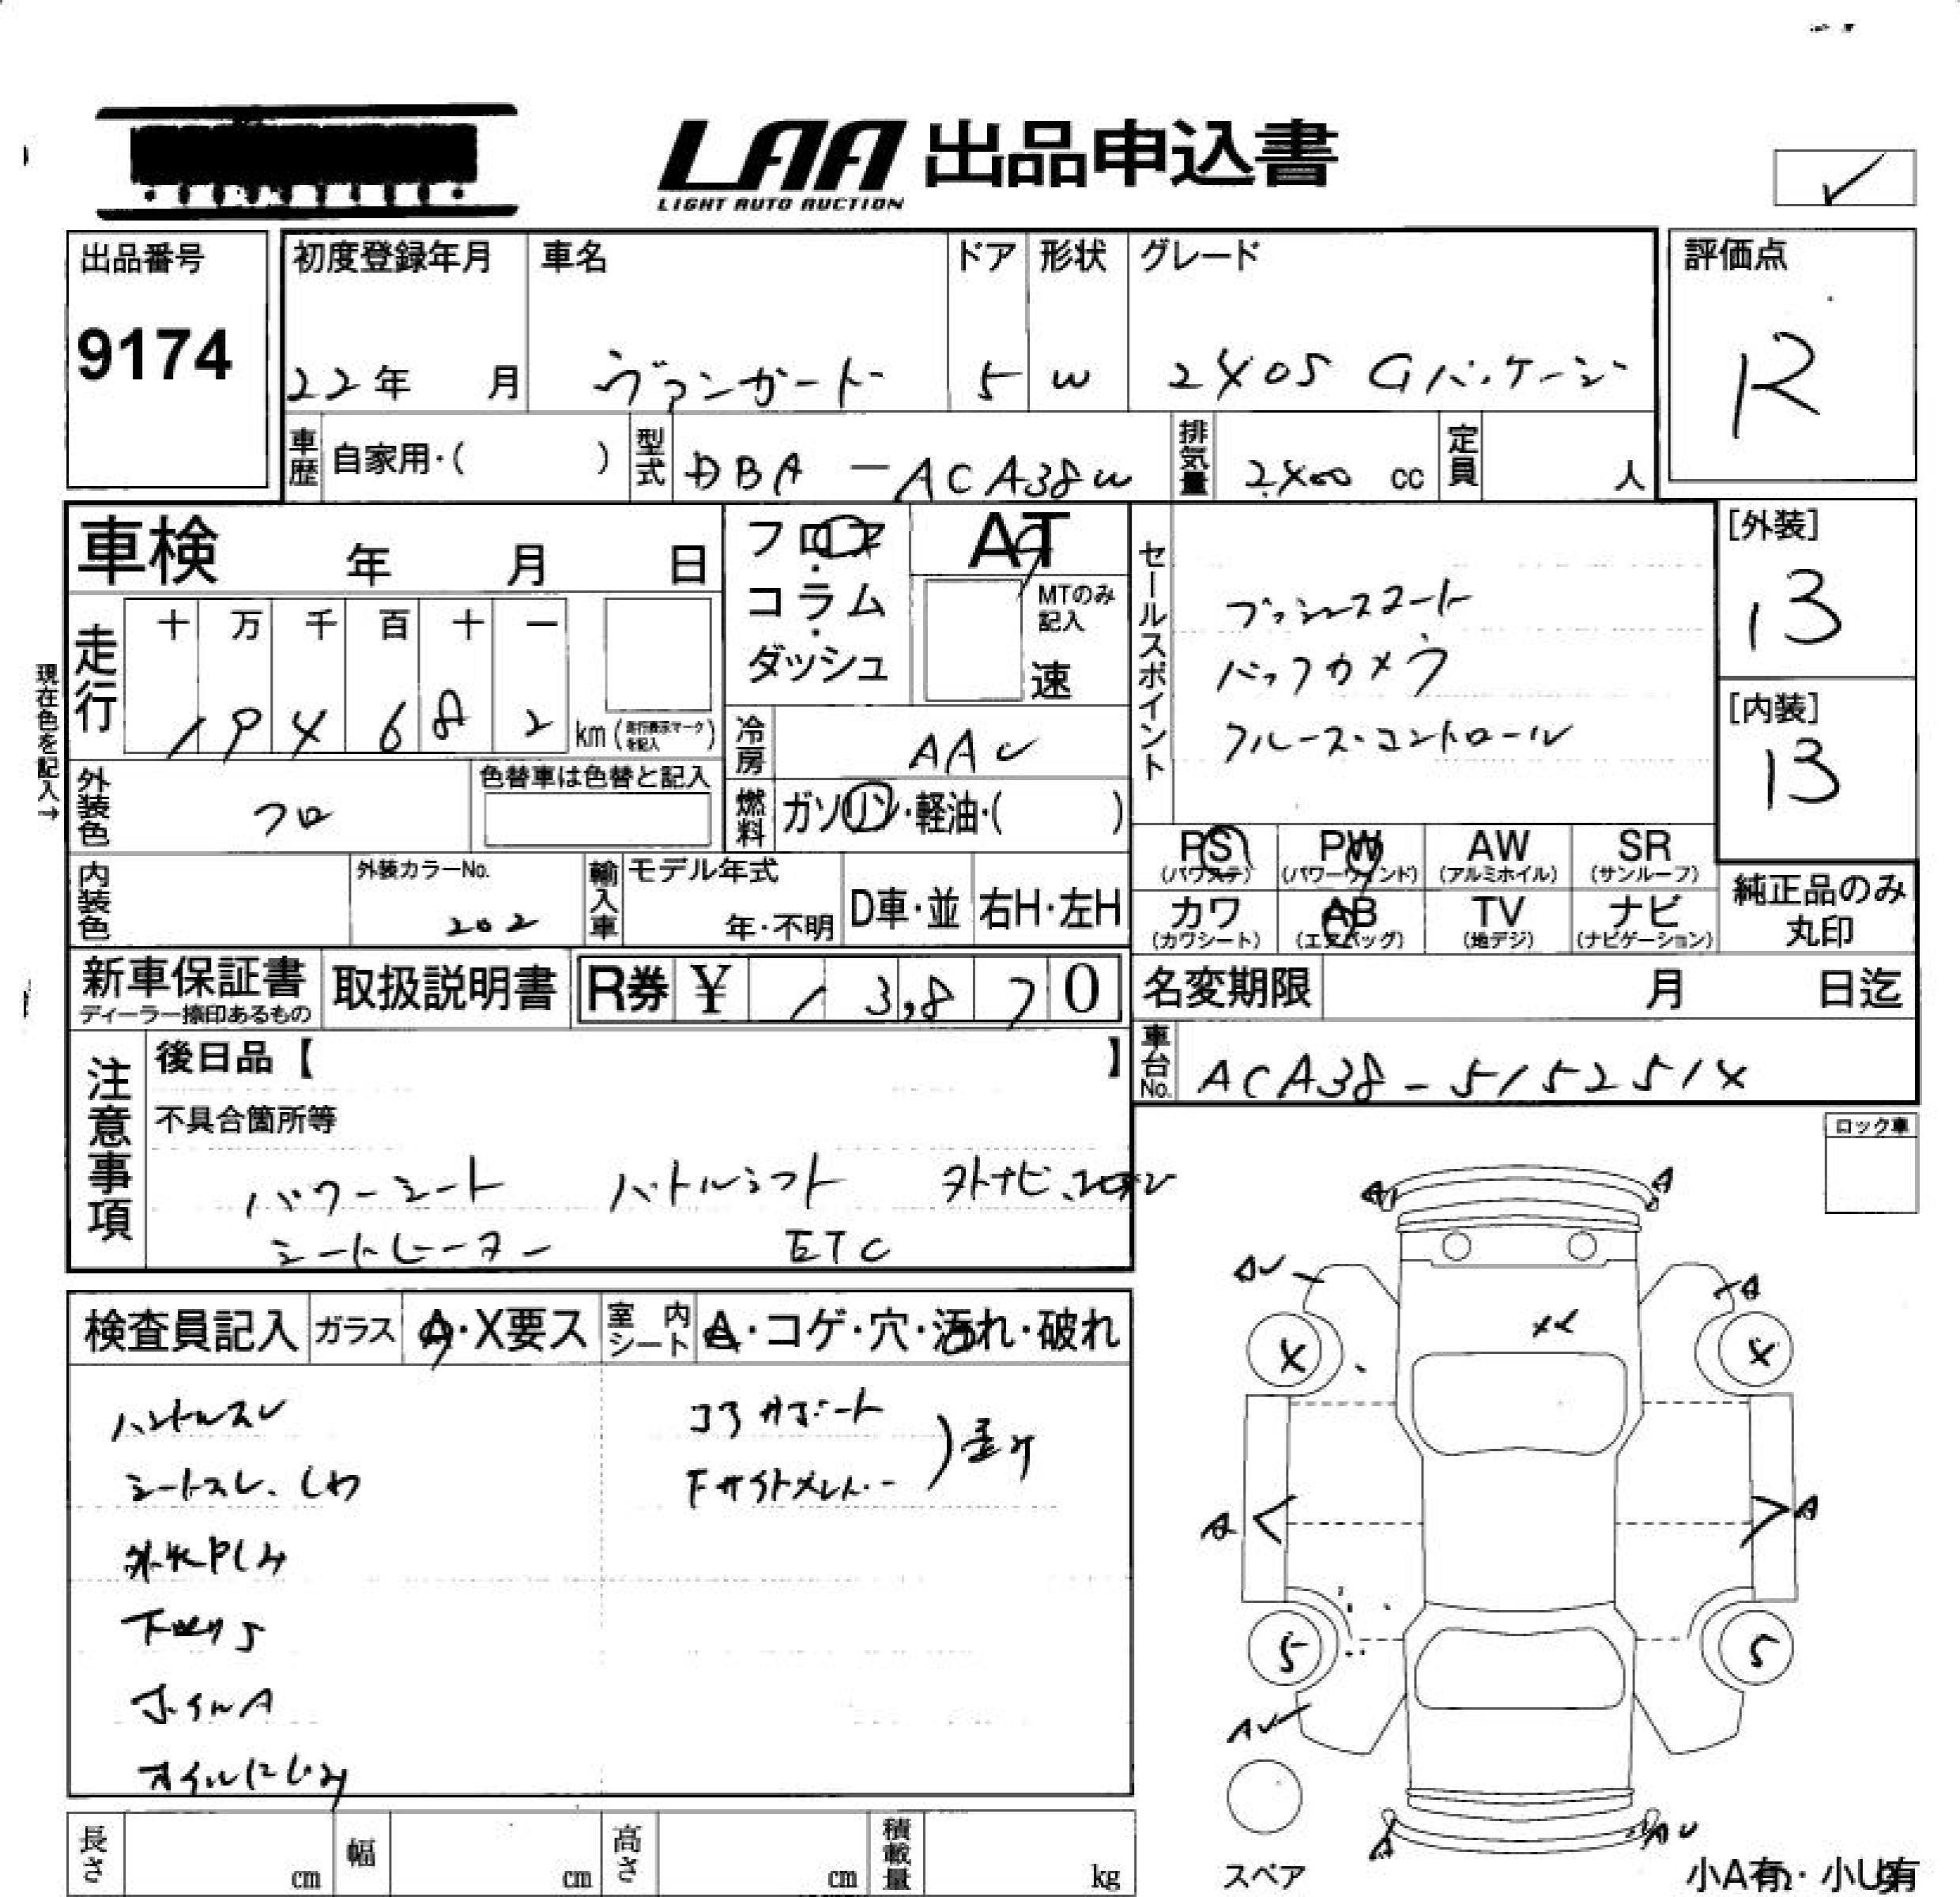 LAA 出品申込書
LIGHT AUTO AUCTION
出品番号
9174
初度登録年月
22年 月
車名
ヴァンガード
ドア
5
形状
W
グレード
240S Gパッケージ
評価点
R
車歴 自家用・( )
型式 DBA-ACA38W
排気量 2400 cc
定員 人
車検 年 月 日
フロア・コラム・ダッシュ
AT
MTのみ記入
速
セールスポイント
プッシュスタート
バックカメラ
クルーズコントロール
[外装]
B
[内装]
B
現在色を記入→
走行
十 万 千 百 十 一
1 9 4 6 8 2 km (走行表示マークを記入)
冷房 AAC
外装色 クロ
色替車は色替と記入
燃料 ガソリン・軽油・( )
PS (パワステ)
PW (パワーウィンド)
AW (アルミホイル)
SR (サンルーフ)
カワ (カワシート)
AB (エアバッグ)
TV (地デジ)
ナビ (ナビゲーション)
純正品のみ丸印
内装色
外装カラーNo.
202
輸入車
モデル年式
年・不明
D車・並
右H・左H
新車保証書
ディーラー捺印あるもの
取扱説明書
R券 ¥ 13,870
名変期限 月 日迄
車台No. ACA38-5152514
注意事項
後日品【 】
不具合箇所等
パワーシート パドルシフト
シートヒーター ETC
ロック車
検査員記入
ガラス A・X要ス
室内シート A・コゲ・穴・汚れ・破れ
ハンドルスレ
シートスレ、シワ
下廻りS
ホイルA
オイルにじみ
コアサポート
A
A
AU
A
4
4
A
A
5
5
AU
A
AU
スペア
小A有・小U有
長さ cm
幅 cm
高さ cm
積載量 kg